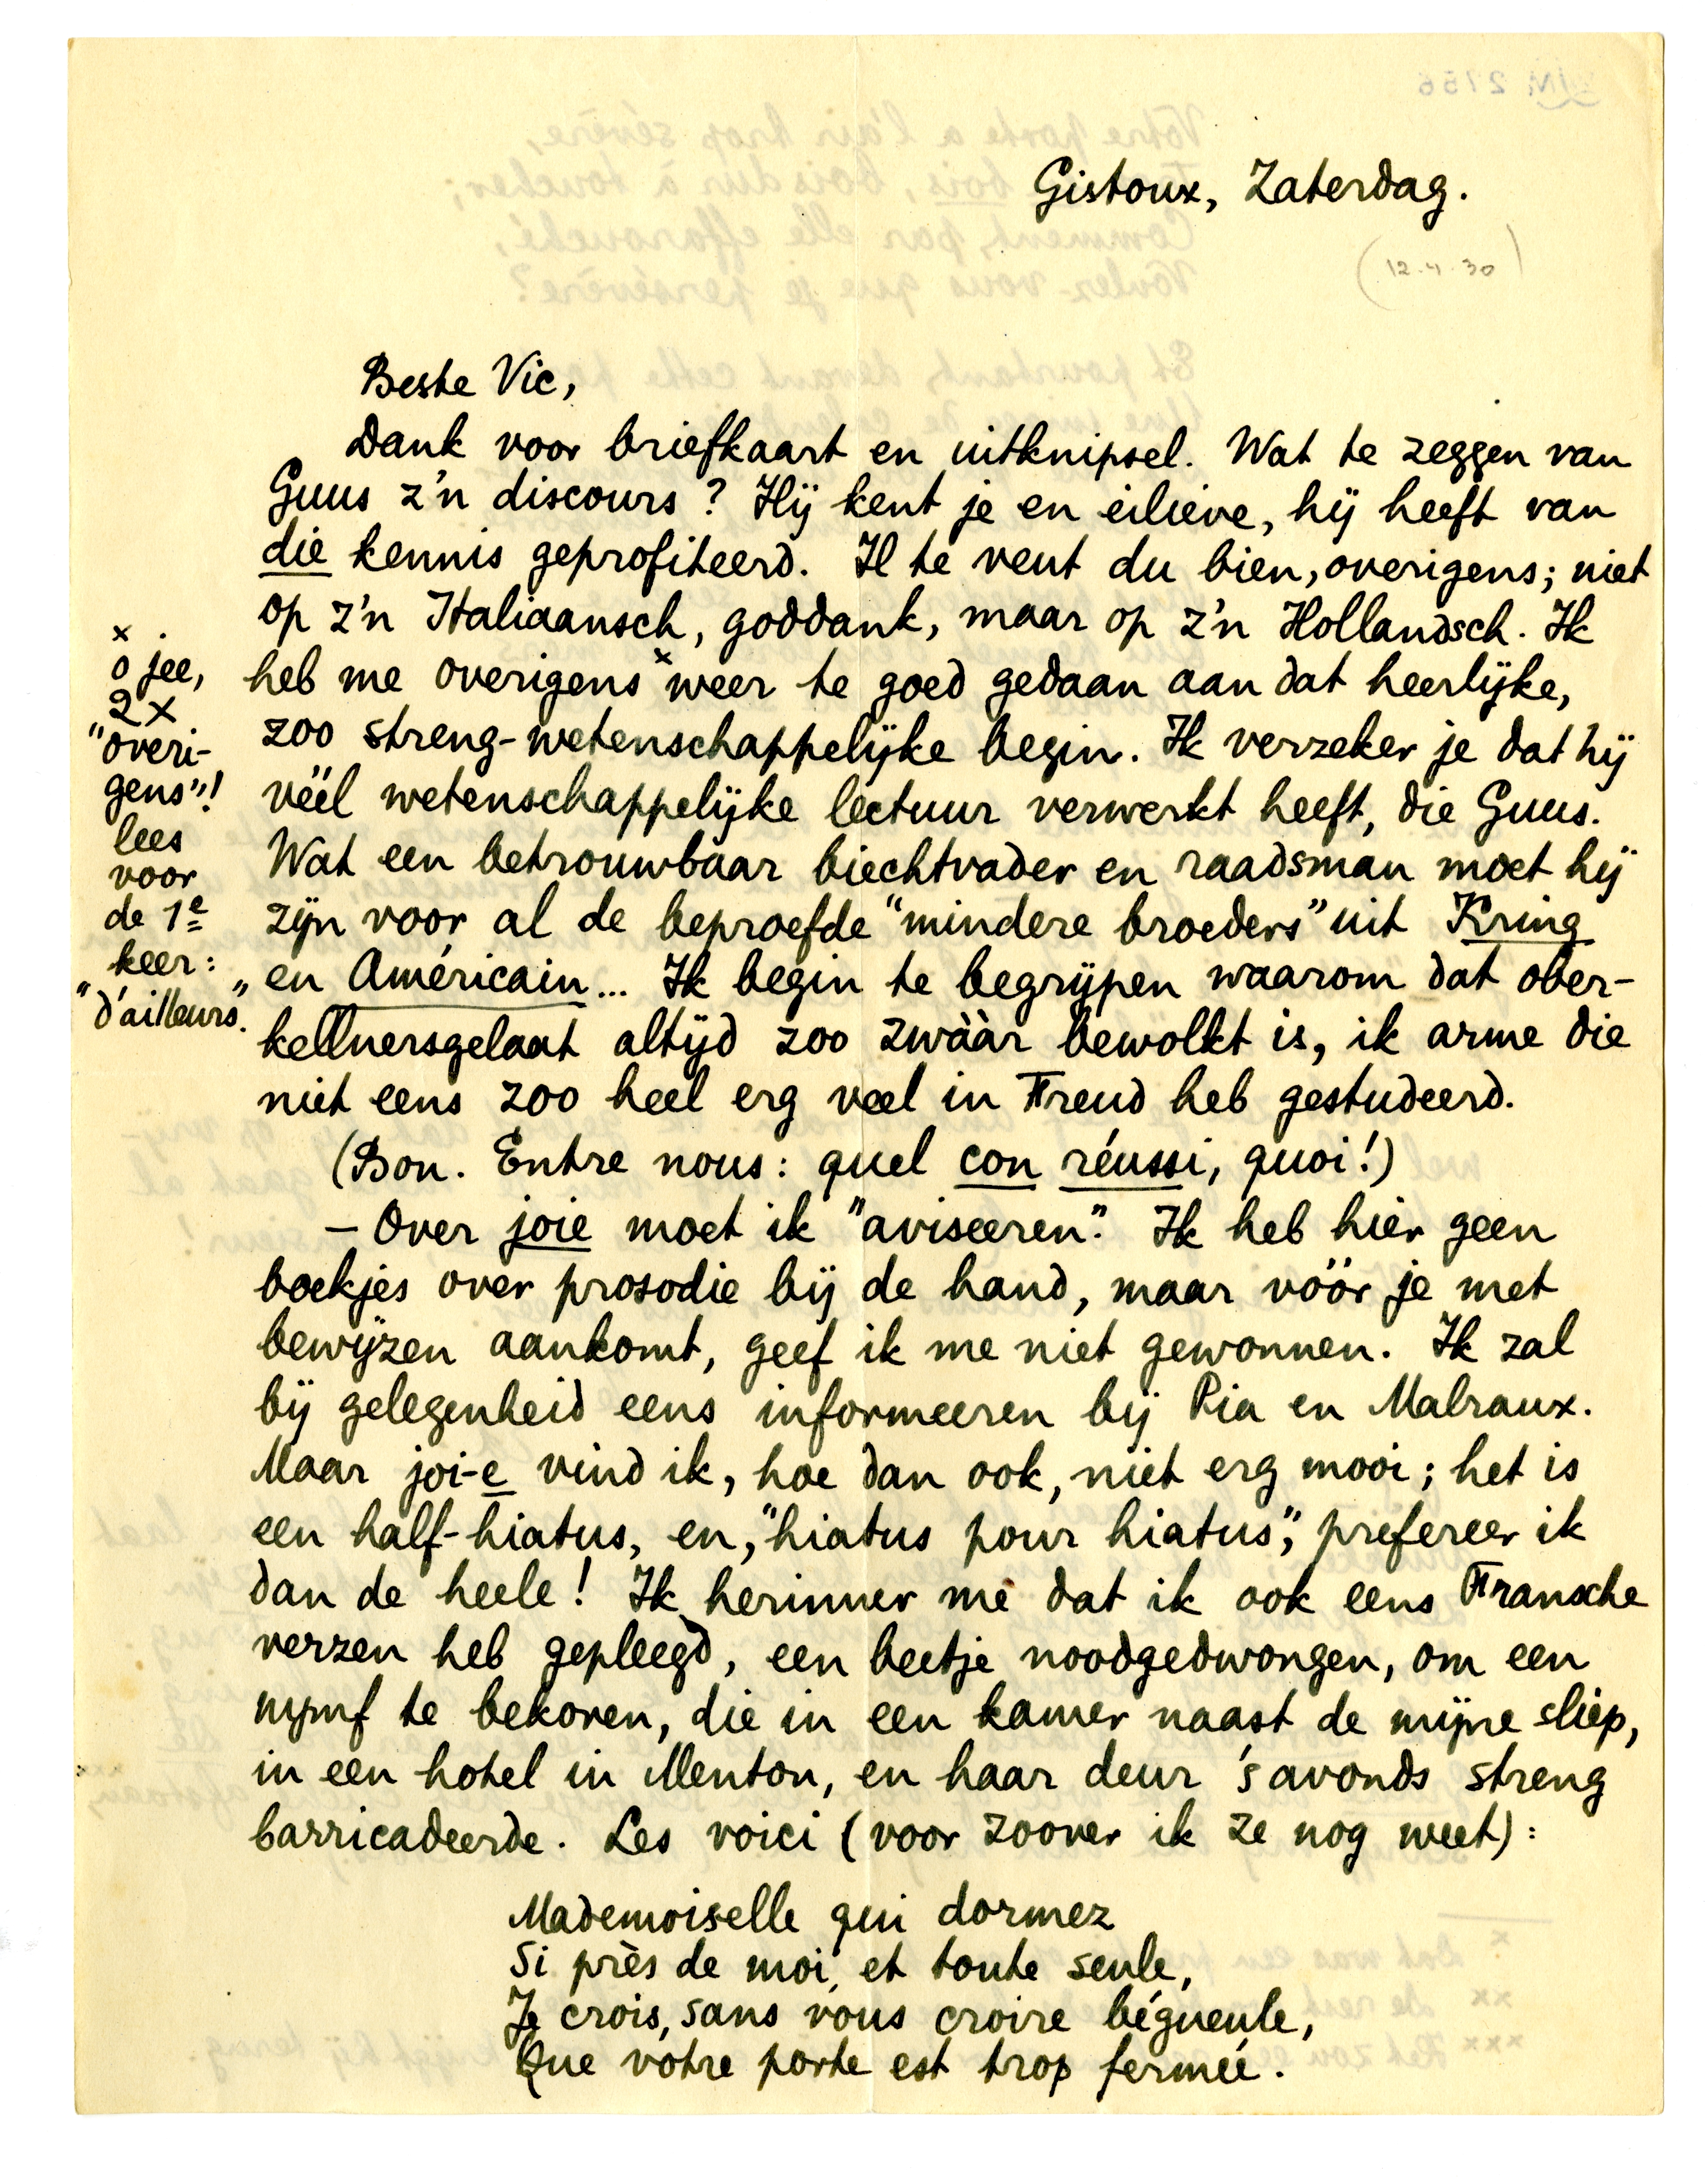 Gistoux, Zaterdag.
(12.4.30)
Beste Vic,
Dank voor briefkaart en uitknipsel. Wat te zeggen van
Guus z'n discours? Hij kent je en eilieve, hij heeft van
die kennis geprofiteerd. Il te veut du bien, overigens; niet
op z'n Italiaansch, goddank, maar op z'n Hollandsch. Ik
heb me overigens x weer te goed gedaan aan dat heerlijke,
zoo streng-wetenschappelijke begin. Ik verzeker je dat hij
véél wetenschappelijke lectuur verwerkt heeft, die Guus.
Wat een betrouwbaar biechtvader en raadsman moet hij
zijn voor al de beproefde "mindere broeders" uit Kring
en Américain... Ik begin te begrijpen waarom dat ober-
kellnersgelaat altijd zoo zwààr bewolkt is, ik arme die
niet eens zoo heel erg veel in Freud heb gestudeerd.
(Bon. Entre nous: quel con réussi, quoi!)
– Over joie moet ik "aviseeren". Ik heb hier geen
boekjes over prosodie bij de hand, maar vóór je met
bewijzen aankomt, geef ik me niet gewonnen. Ik zal
bij gelegenheid eens informeeren bij Pia en Malraux.
Maar joi-e vind ik, hoe dan ook, niet erg mooi; het is
een half-hiatus, en, "hiatus pour hiatus", prefereer ik
dan de heele! Ik herinner me dat ik ook eens Fransche
verzen heb gepleegd, een beetje noodgedwongen, om een
nymf te bekoren, die in een kamer naast de mijne sliep,
in een hotel in Menton, en haar deur 's avonds streng
barricadeerde. Les voici (voor zoover ik ze nog weet):
Mademoiselle qui dormez
Si près de moi, et toute seule,
Je crois, sans vous croire bégueule,
Que votre porte est trop fermée.
x
o jee,
2 x
"overi-
gens"!
lees
voor
de 1e
keer:
"d'ailleurs".